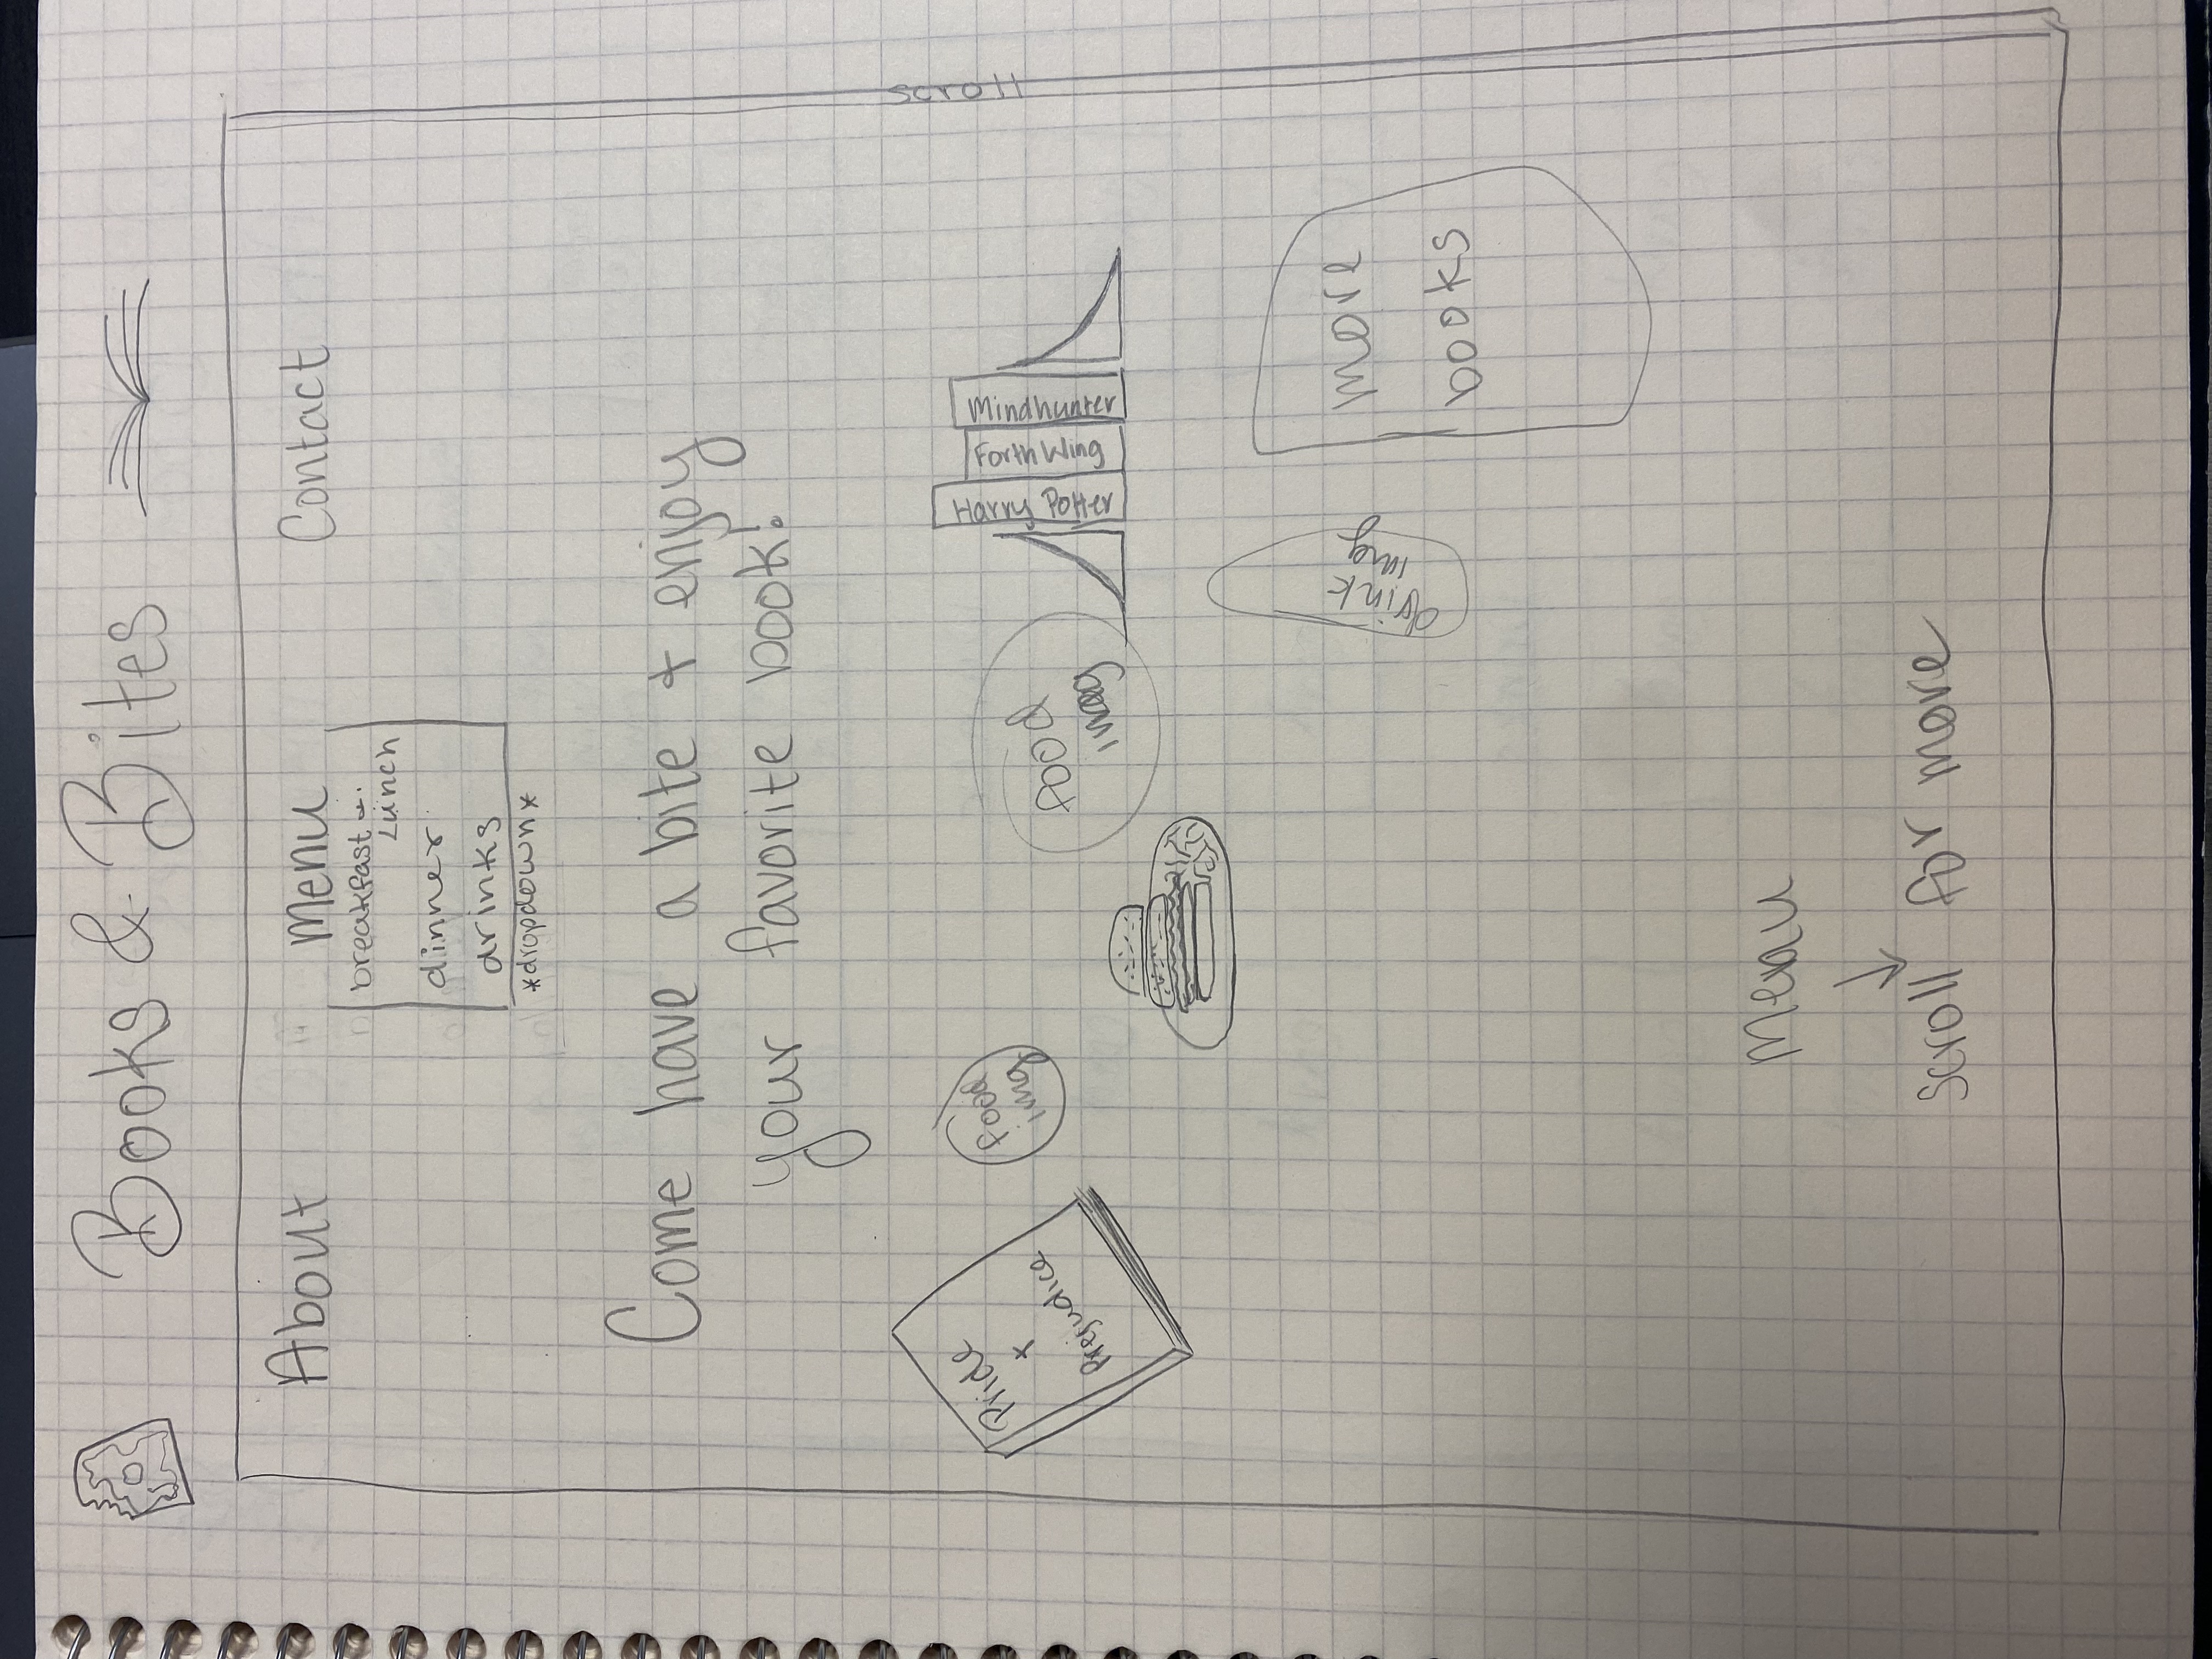 Books & Bites
About
Menu
Contact
breakfast &
Lunch
dinner
drinks
*dropdown*
Come have a bite + enjoy
your favorite book!
scroll
Pride
+
Prejudice
food
img
food
img
Harry Potter
Forth Wing
Mindhunter
drink
img
more
books
Menu
↓
scroll for more